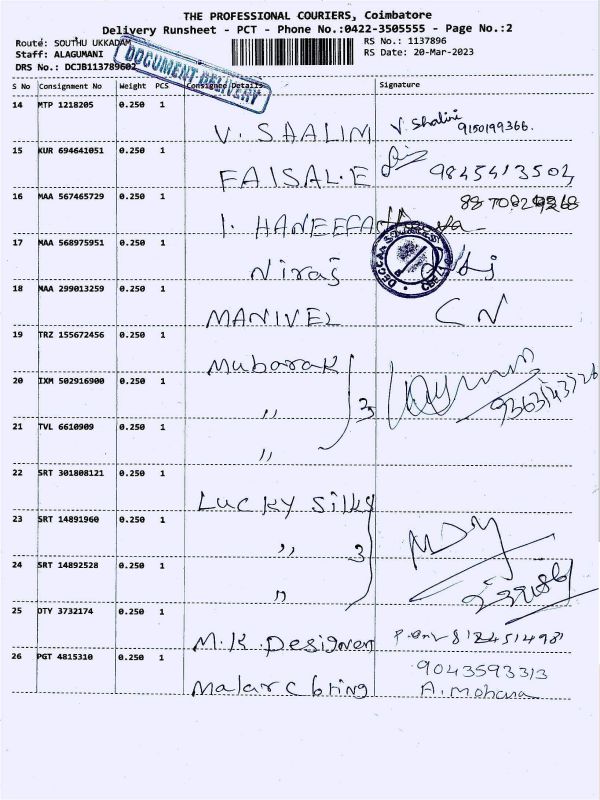 THE PROFESSIONAL COURIERS, Coimbatore
Delivery Runsheet - PCT - Phone No.:0422-3505555 - Page No.:2
Route: SOUTHU UKKADAM
RS No.: 1137896
Staff: ALAGUMANI
RS Date: 20-Mar-2023
DRS No.: DCJB113789602
DOCUMENT DELIVERY
S No Consignment No Weight PCS Consignee Details Signature
14 MTP 1218205 0.250 1
V. SAALIM V. Shalini 9150199366.
15 KUR 694641051 0.250 1
FAISAL.E
16 MAA 567465729 0.250 1
I. HANEEFA
17 MAA 568975951 0.250 1
Niraj
18 MAA 299013259 0.250 1
MANIVEL CN
19 TRZ 155672456 0.250 1
Mubarak
20 IXM 502916900 0.250 1
,, 3
21 TVL 6610909 0.250 1
,,
22 SRT 301808121 0.250 1
Lucky Silks
23 SRT 14891960 0.250 1
,, 3
24 SRT 14892528 0.250 1
,,
25 DTY 3732174 0.250 1
M.K. Designer
26 PGT 4815310 0.250 1
9043593313
Malar A. Mohana